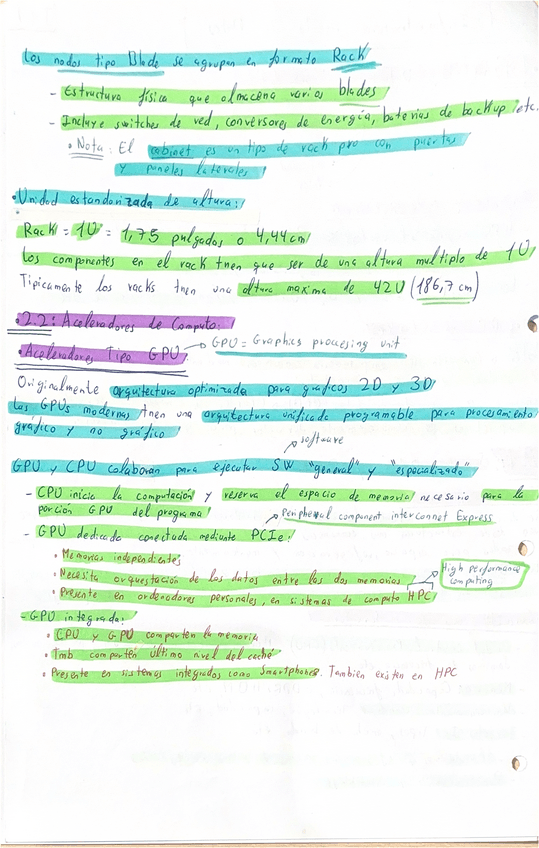 Los nodos tipo Blade se agrupan en formato Rack
- Estructura física que almacena varios blades
- Incluye switches de red, conversores de energía, baterias de backup, etc.
• Nota: El cabinet es un tipo de rack pro con puertas
y paneles laterales
• Unidad estandarizada de altura:
Rack = 1U = 1,75 pulgadas o 4,44 cm
Los componentes en el rack tnen que ser de una altura multiplo de 1U
Tipicamente los racks tnen una altura maxima de 42U (186,7 cm)
• 2.2: Aceleradores de Computo:
• Aceleradores Tipo GPU → GPU = Graphics procesing unit
Originalmente arquitectura optimizada para graficos 2D y 3D
Las GPUs modernas tnen una arquitectura unificada programable para procesamiento
gráfico y no gráfico
software
GPU y CPU colaboran para ejecutar SW "general" y "especializado"
- CPU inicia la computación y reserva el espacio de memoria necesario para la
porción GPU del programa
Peripheral component interconnet Express
- GPU dedicada conectada mediante PCIe:
• Memorias independientes
• Necesita orquestación de los datos entre las dos memorias
High performance
computing
• Presente en ordenadores personales, en sistemas de computo HPC
- GPU integrada:
• CPU y GPU comparten la memoria
• Tmb comparten último nivel del caché
• Presente en sistemas integrados como Smartphones. También existen en HPC